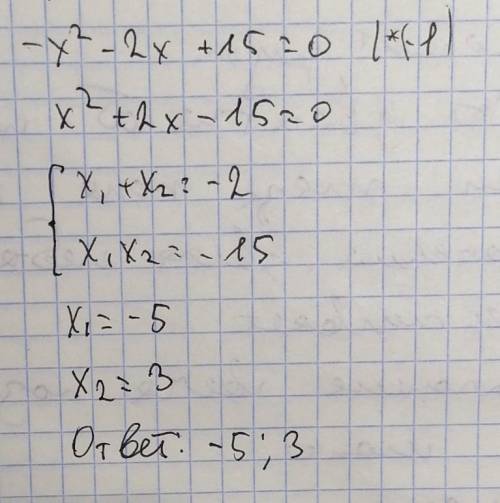 -x² - 2x + 15 = 0 |*(-1)
x² + 2x - 15 = 0
{ x₁ + x₂ = -2
x₁x₂ = -15
x₁ = -5
x₂ = 3
Ответ: -5; 3